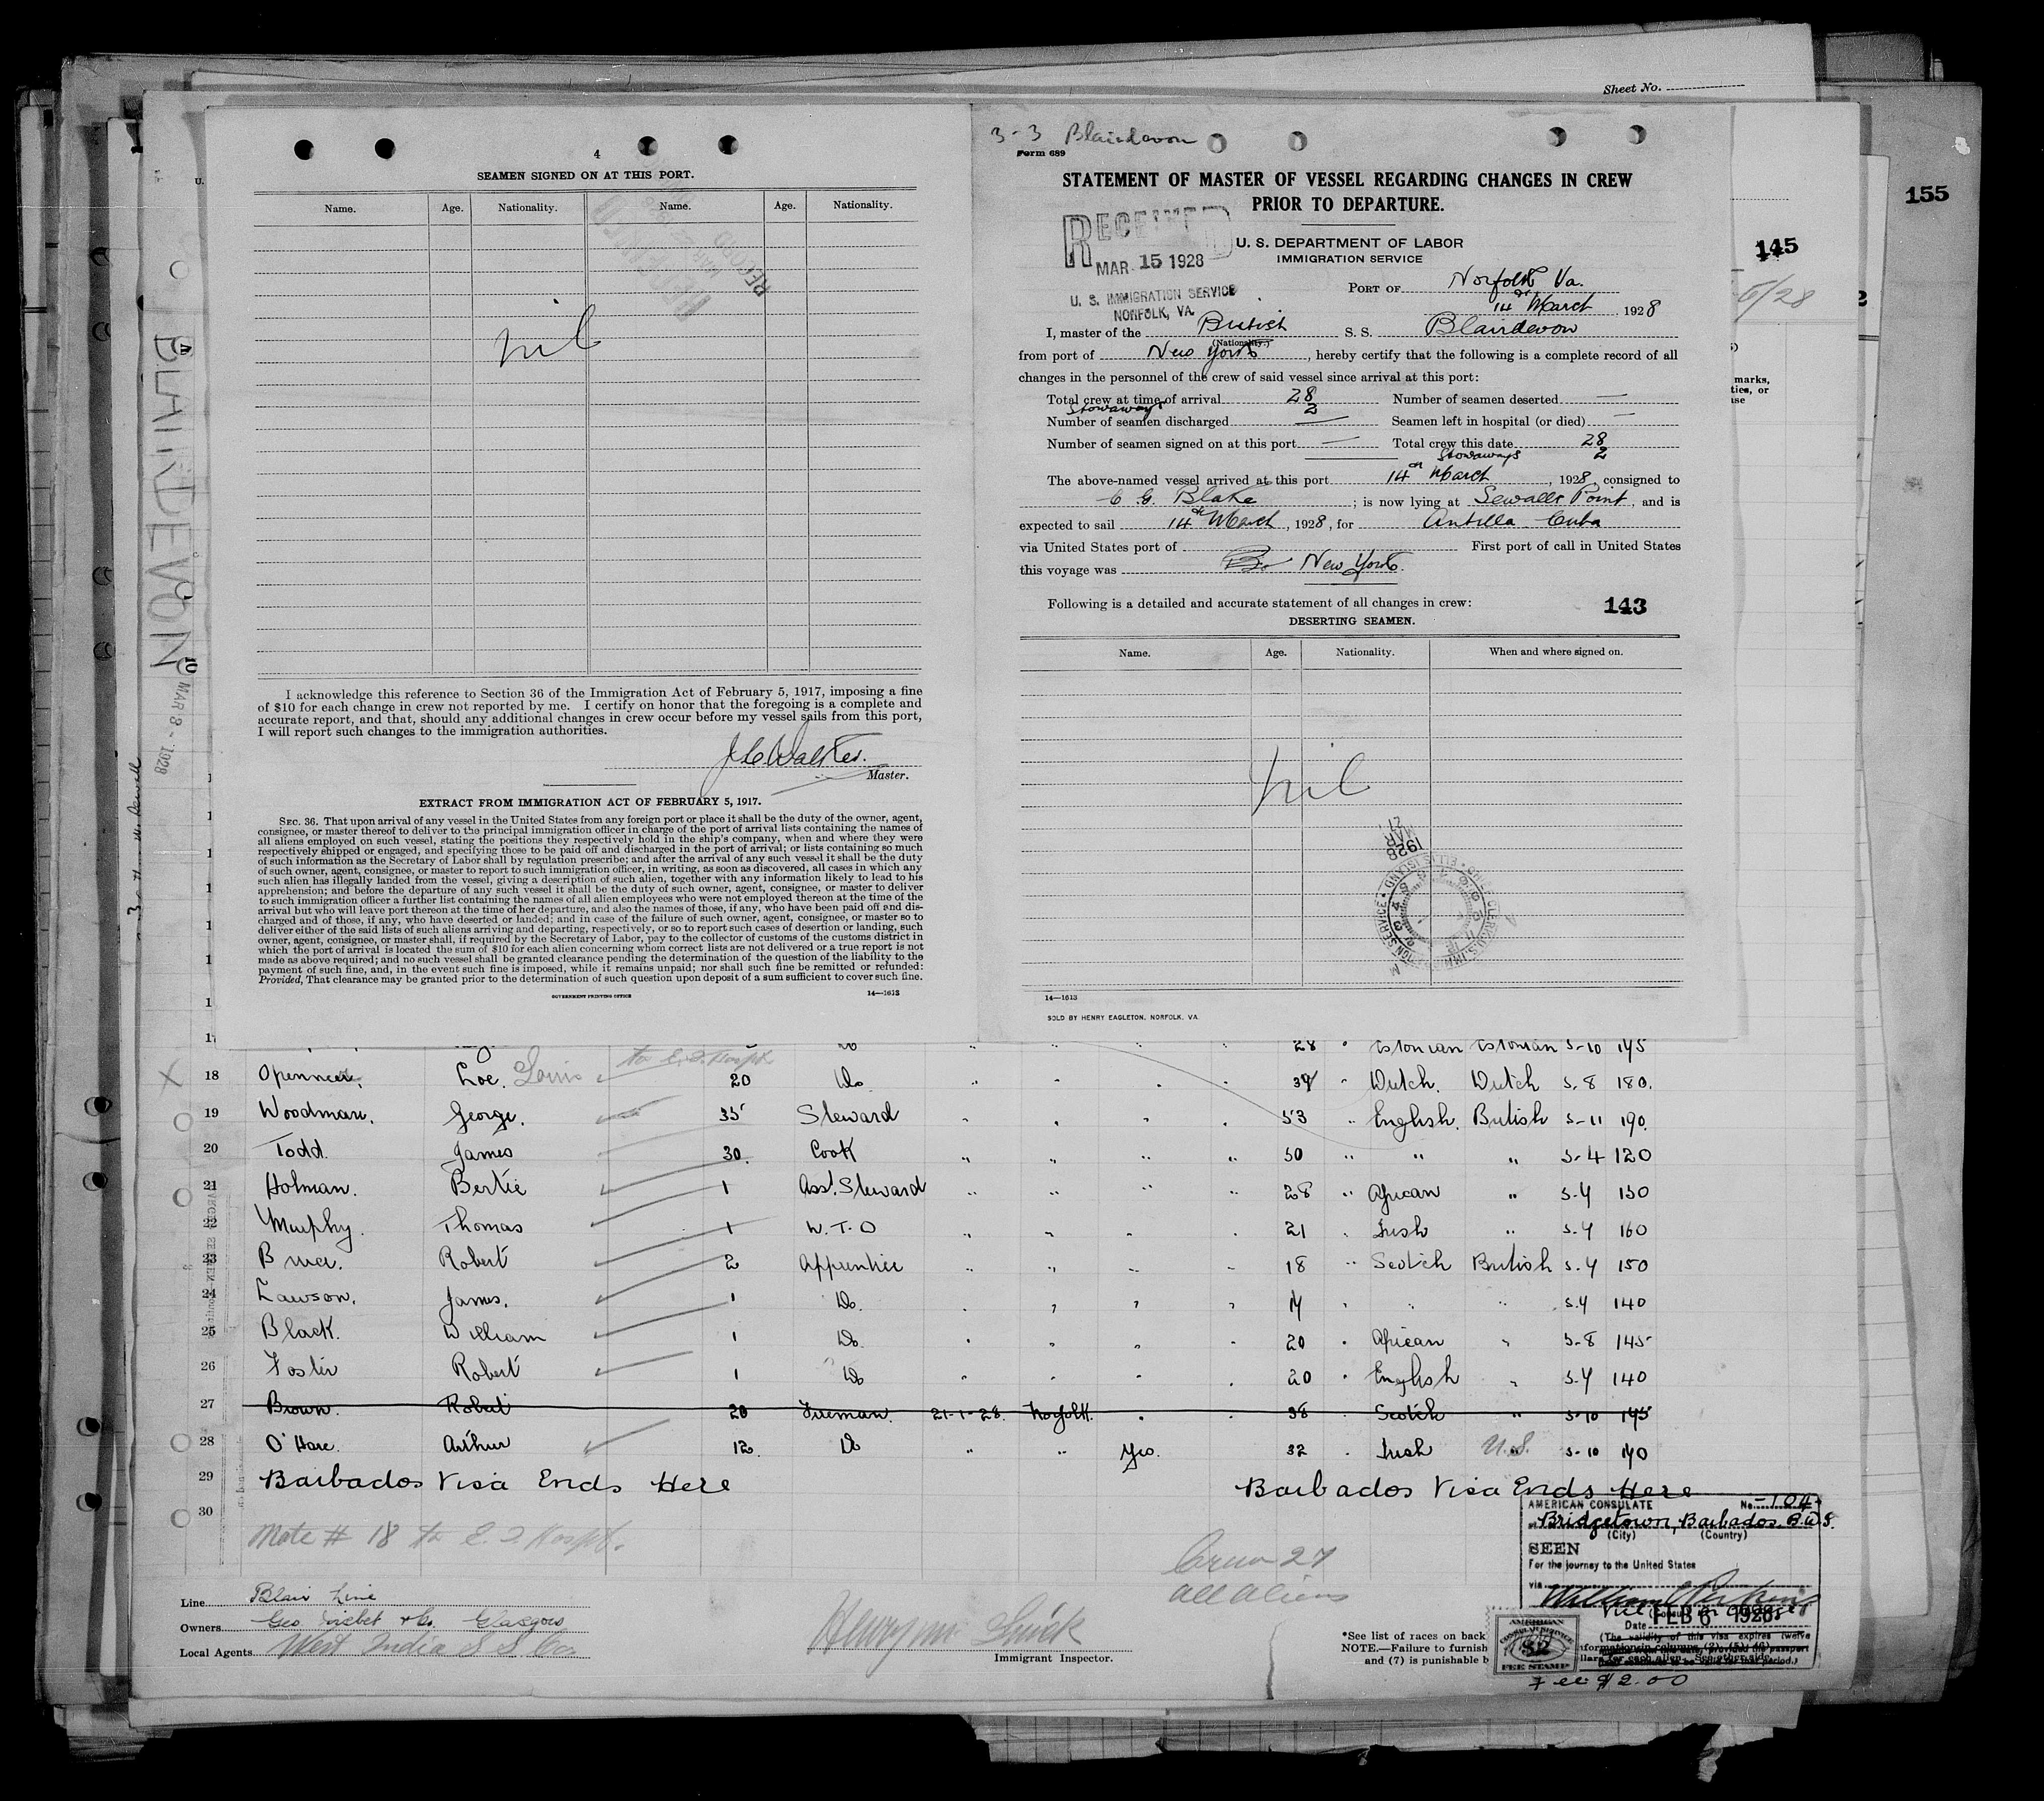 Sheet No.
155
145
6/28
marks,
ties, or
use
BLAIRDEVON
MAR 8 - 1928
4
SEAMEN SIGNED ON AT THIS PORT.
Name. Age. Nationality. Name. Age. Nationality.
nil
I acknowledge this reference to Section 36 of the Immigration Act of February 5, 1917, imposing a fine
of $10 for each change in crew not reported by me. I certify on honor that the foregoing is a complete and
accurate report, and that, should any additional changes in crew occur before my vessel sails from this port,
I will report such changes to the immigration authorities.
J C Walker.
Master.
EXTRACT FROM IMMIGRATION ACT OF FEBRUARY 5, 1917.
SEC. 36. That upon arrival of any vessel in the United States from any foreign port or place it shall be the duty of the owner, agent,
consignee, or master thereof to deliver to the principal immigration officer in charge of the port of arrival lists containing the names of
all aliens employed on such vessel, stating the positions they respectively hold in the ship's company, when and where they were
respectively shipped or engaged, and specifying those to be paid off and discharged in the port of arrival; or lists containing so much
of such information as the Secretary of Labor shall by regulation prescribe; and after the arrival of any such vessel it shall be the duty
of such owner, agent, consignee, or master to report to such immigration officer, in writing, as soon as discovered, all cases in which any
such alien has illegally landed from the vessel, giving a description of such alien, together with any information likely to lead to his
apprehension; and before the departure of any such vessel it shall be the duty of such owner, agent, consignee, or master to deliver
to such immigration officer a further list containing the names of all alien employees who were not employed thereon at the time of the
arrival but who will leave port thereon at the time of her departure, and also the names of those, if any, who have been paid off and dis-
charged and of those, if any, who have deserted or landed; and in case of the failure of such owner, agent, consignee, or master so to
deliver either of the said lists of such aliens arriving and departing, respectively, or so to report such cases of desertion or landing, such
owner, agent, consignee, or master shall, if required by the Secretary of Labor, pay to the collector of customs of the customs district in
which the port of arrival is located the sum of $10 for each alien concerning whom correct lists are not delivered or a true report is not
made as above required; and no such vessel shall be granted clearance pending the determination of the question of the liability to the
payment of such fine, and, in the event such fine is imposed, while it remains unpaid; nor shall such fine be remitted or refunded:
Provided, That clearance may be granted prior to the determination of such question upon deposit of a sum sufficient to cover such fine.
GOVERNMENT PRINTING OFFICE 14—1613
3-3 Blairdevon
Form 689
STATEMENT OF MASTER OF VESSEL REGARDING CHANGES IN CREW
PRIOR TO DEPARTURE.
RECEIVED
MAR 15 1928
U. S. IMMIGRATION SERVICE
NORFOLK, VA.
U. S. DEPARTMENT OF LABOR
IMMIGRATION SERVICE
PORT OF Norfolk Va.
14th March, 1928
I, master of the British S. S. Blairdevon
(Nationality.)
from port of New York, hereby certify that the following is a complete record of all
changes in the personnel of the crew of said vessel since arrival at this port:
Total crew at time of arrival 28 Number of seamen deserted —
Stowaways 2
Number of seamen discharged — Seamen left in hospital (or died) —
Number of seamen signed on at this port — Total crew this date 28
Stowaways 2
The above-named vessel arrived at this port 14th March, 1928, consigned to
C. G. Blake; is now lying at Sewalls Point, and is
expected to sail 14th March, 1928, for Antilla Cuba
via United States port of First port of call in United States
this voyage was New York.
Following is a detailed and accurate statement of all changes in crew: 143
DESERTING SEAMEN.
Name. Age. Nationality. When and where signed on.
nil
1928
MAR
21
14—1613
SOLD BY HENRY EAGLETON, NORFOLK, VA.
Do 28 " Estonian Estonian 5-10 145
to E.I. Hospt
18 Loe. Louis 20 Do. " " " " Dutch. Dutch 5-8 180.
19 Woodman. George. 35 Steward " " " " 53 " English. British 5-11 190.
20 Todd. James 30. Cook " " " " 50 " " " 5-4 120
21 Holman. Bertie 1 Asst. Steward " " " " 28 " African " 5-4 150
22 Murphy. Thomas 1 W.T.O " " " " 21 " Irish " 5-4 160
23 Robert 2 Apprentice " " " " 18 " Scotch British 5-4 150
24 Lawson. James. 1 Do. " " " " " " " 5-4 140
25 Black. William 1 Do. " " " " 20 " African " 5-8 145
26 Foster Robert 1 Do " " " " 20 " English " 5-4 140
27 Brown. Robert 20 Fireman. 21-1-28. Norfolk. " " 38 " Scotch " 5-10 145
28 O'Hare. Arthur 12. Do " " Yes. 32 " Irish U.S. 5-10 140
29 Barbados Visa Ends Here Barbados Visa Ends Here
30
Note # 18 to E. I. Hospt.
Crew 27
all aliens
AMERICAN CONSULATE No. 104
Bridgetown, Barbados. B.W.I.
(City) (Country)
SEEN
For the journey to the United States
via
Date FEB 6 1928
AMERICAN
CONSULAR SERVICE
$2
FEE STAMP
Fee $2.00
Line Blair Line
Owners Geo Nisbet & Co. Glasgow
Local Agents West India S S Co.
Immigrant Inspector.
*See list of races on back
NOTE.—Failure to furnish
and (7) is punishable